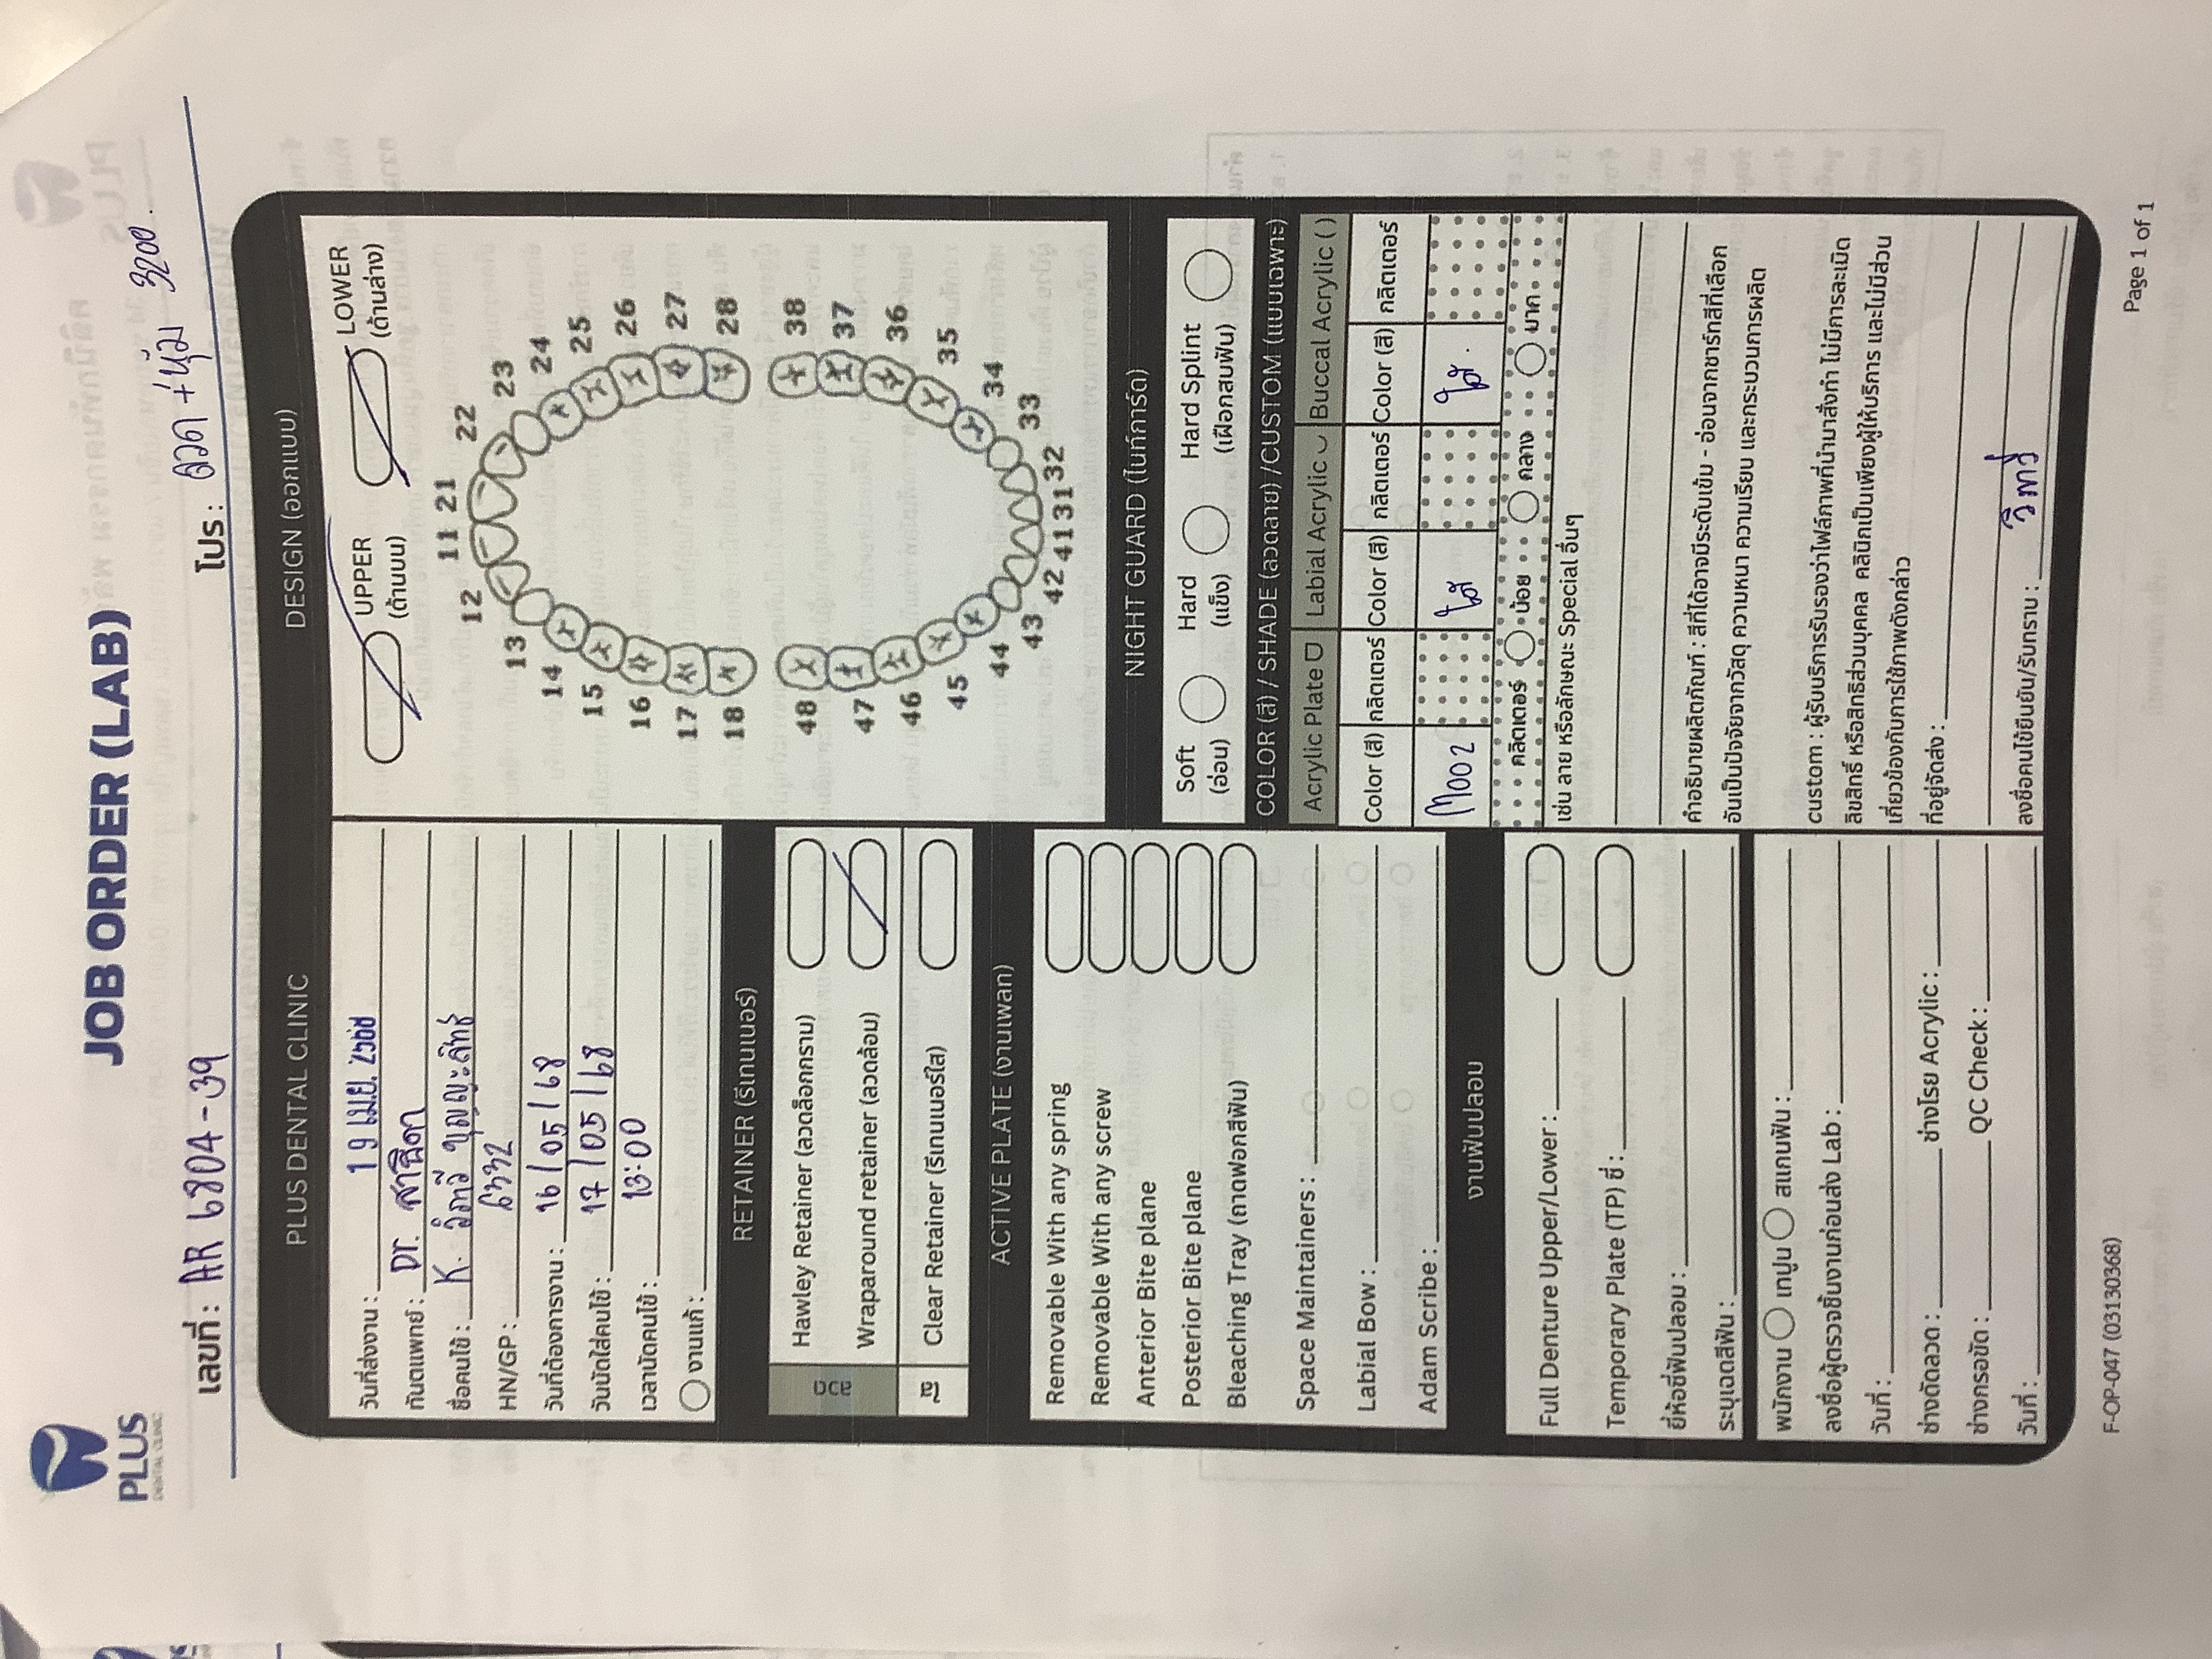 PLUS
DENTAL CLINIC
JOB ORDER (LAB)
เลขที่ : AR 6804-39
โปร : ลวด + หุ้ม 3200.
PLUS DENTAL CLINIC
วันที่ส่งงาน : 19 เม.ย. 2568
ทันตแพทย์ : Dr. สาธิดา
ชื่อคนไข้ : K. วิภาวี บุญญะสิทธิ์
HN/GP : 6332
วันที่ต้องการงาน : 16/05/68
วันนัดใส่คนไข้ : 17/05/68
เวลานัดคนไข้ : 13:00
งานแก้ :
RETAINER (รีเทนเนอร์)
ลวด
Hawley Retainer (ลวดล็อกกราม)
Wraparound retainer (ลวดล้อม)
ใส
Clear Retainer (รีเทนเนอร์ใส)
ACTIVE PLATE (งานเพลท)
Removable With any spring
Removable With any screw
Anterior Bite plane
Posterior Bite plane
Bleaching Tray (ถาดฟอกสีฟัน)
Space Maintainers :
Labial Bow :
Adam Scribe :
งานฟันปลอม
Full Denture Upper/Lower :
Temporary Plate (TP) ซี่ :
ยี่ห้อซี่ฟันปลอม :
ระบุเฉดสีฟัน :
พนักงาน เทปูน สแกนฟัน :
ลงชื่อผู้ตรวจชิ้นงานก่อนส่ง Lab :
วันที่ :
ช่างดัดลวด : ช่างโรย Acrylic :
ช่างกรอขัด : QC Check :
วันที่ :
DESIGN (ออกแบบ)
UPPER
(ด้านบน)
LOWER
(ด้านล่าง)
11 21
12 22
13 23
14 24
15 25
16 26
17 27
18 28
48 38
47 37
46 36
45 35
44 34
43 33
42 41 31 32
NIGHT GUARD (ไนท์การ์ด)
Soft
(อ่อน)
Hard
(แข็ง)
Hard Splint
(เฝือกสบฟัน)
COLOR (สี) / SHADE (ลวดลาย) /CUSTOM (แบบเฉพาะ)
Acrylic Plate Labial Acrylic Buccal Acrylic ( )
Color (สี) กลิตเตอร์ Color (สี) กลิตเตอร์ Color (สี) กลิตเตอร์
M002 ใส ใส.
กลิตเตอร์ น้อย กลาง มาก
เช่น ลาย หรือลักษณะ Special อื่นๆ
คำอธิบายผลิตภัณฑ์ : สีที่ได้อาจมีระดับเข้ม - อ่อนจากชาร์ทสีที่เลือก
อันเป็นปัจจัยจากวัสดุ ความหนา ความเรียบ และกระบวนการผลิต
custom : ผู้รับบริการรับรองว่าไฟล์ภาพที่นำมาสั่งทำ ไม่มีการละเมิด
ลิขสิทธิ์ หรือสิทธิส่วนบุคคล คลินิกเป็นเพียงผู้ให้บริการ และไม่มีส่วน
เกี่ยวข้องกับการใช้ภาพดังกล่าว
ที่อยู่จัดส่ง :
ลงชื่อคนไข้ยืนยัน/รับทราบ : วิภาวี
F-OP-047 (03130368)
Page 1 of 1